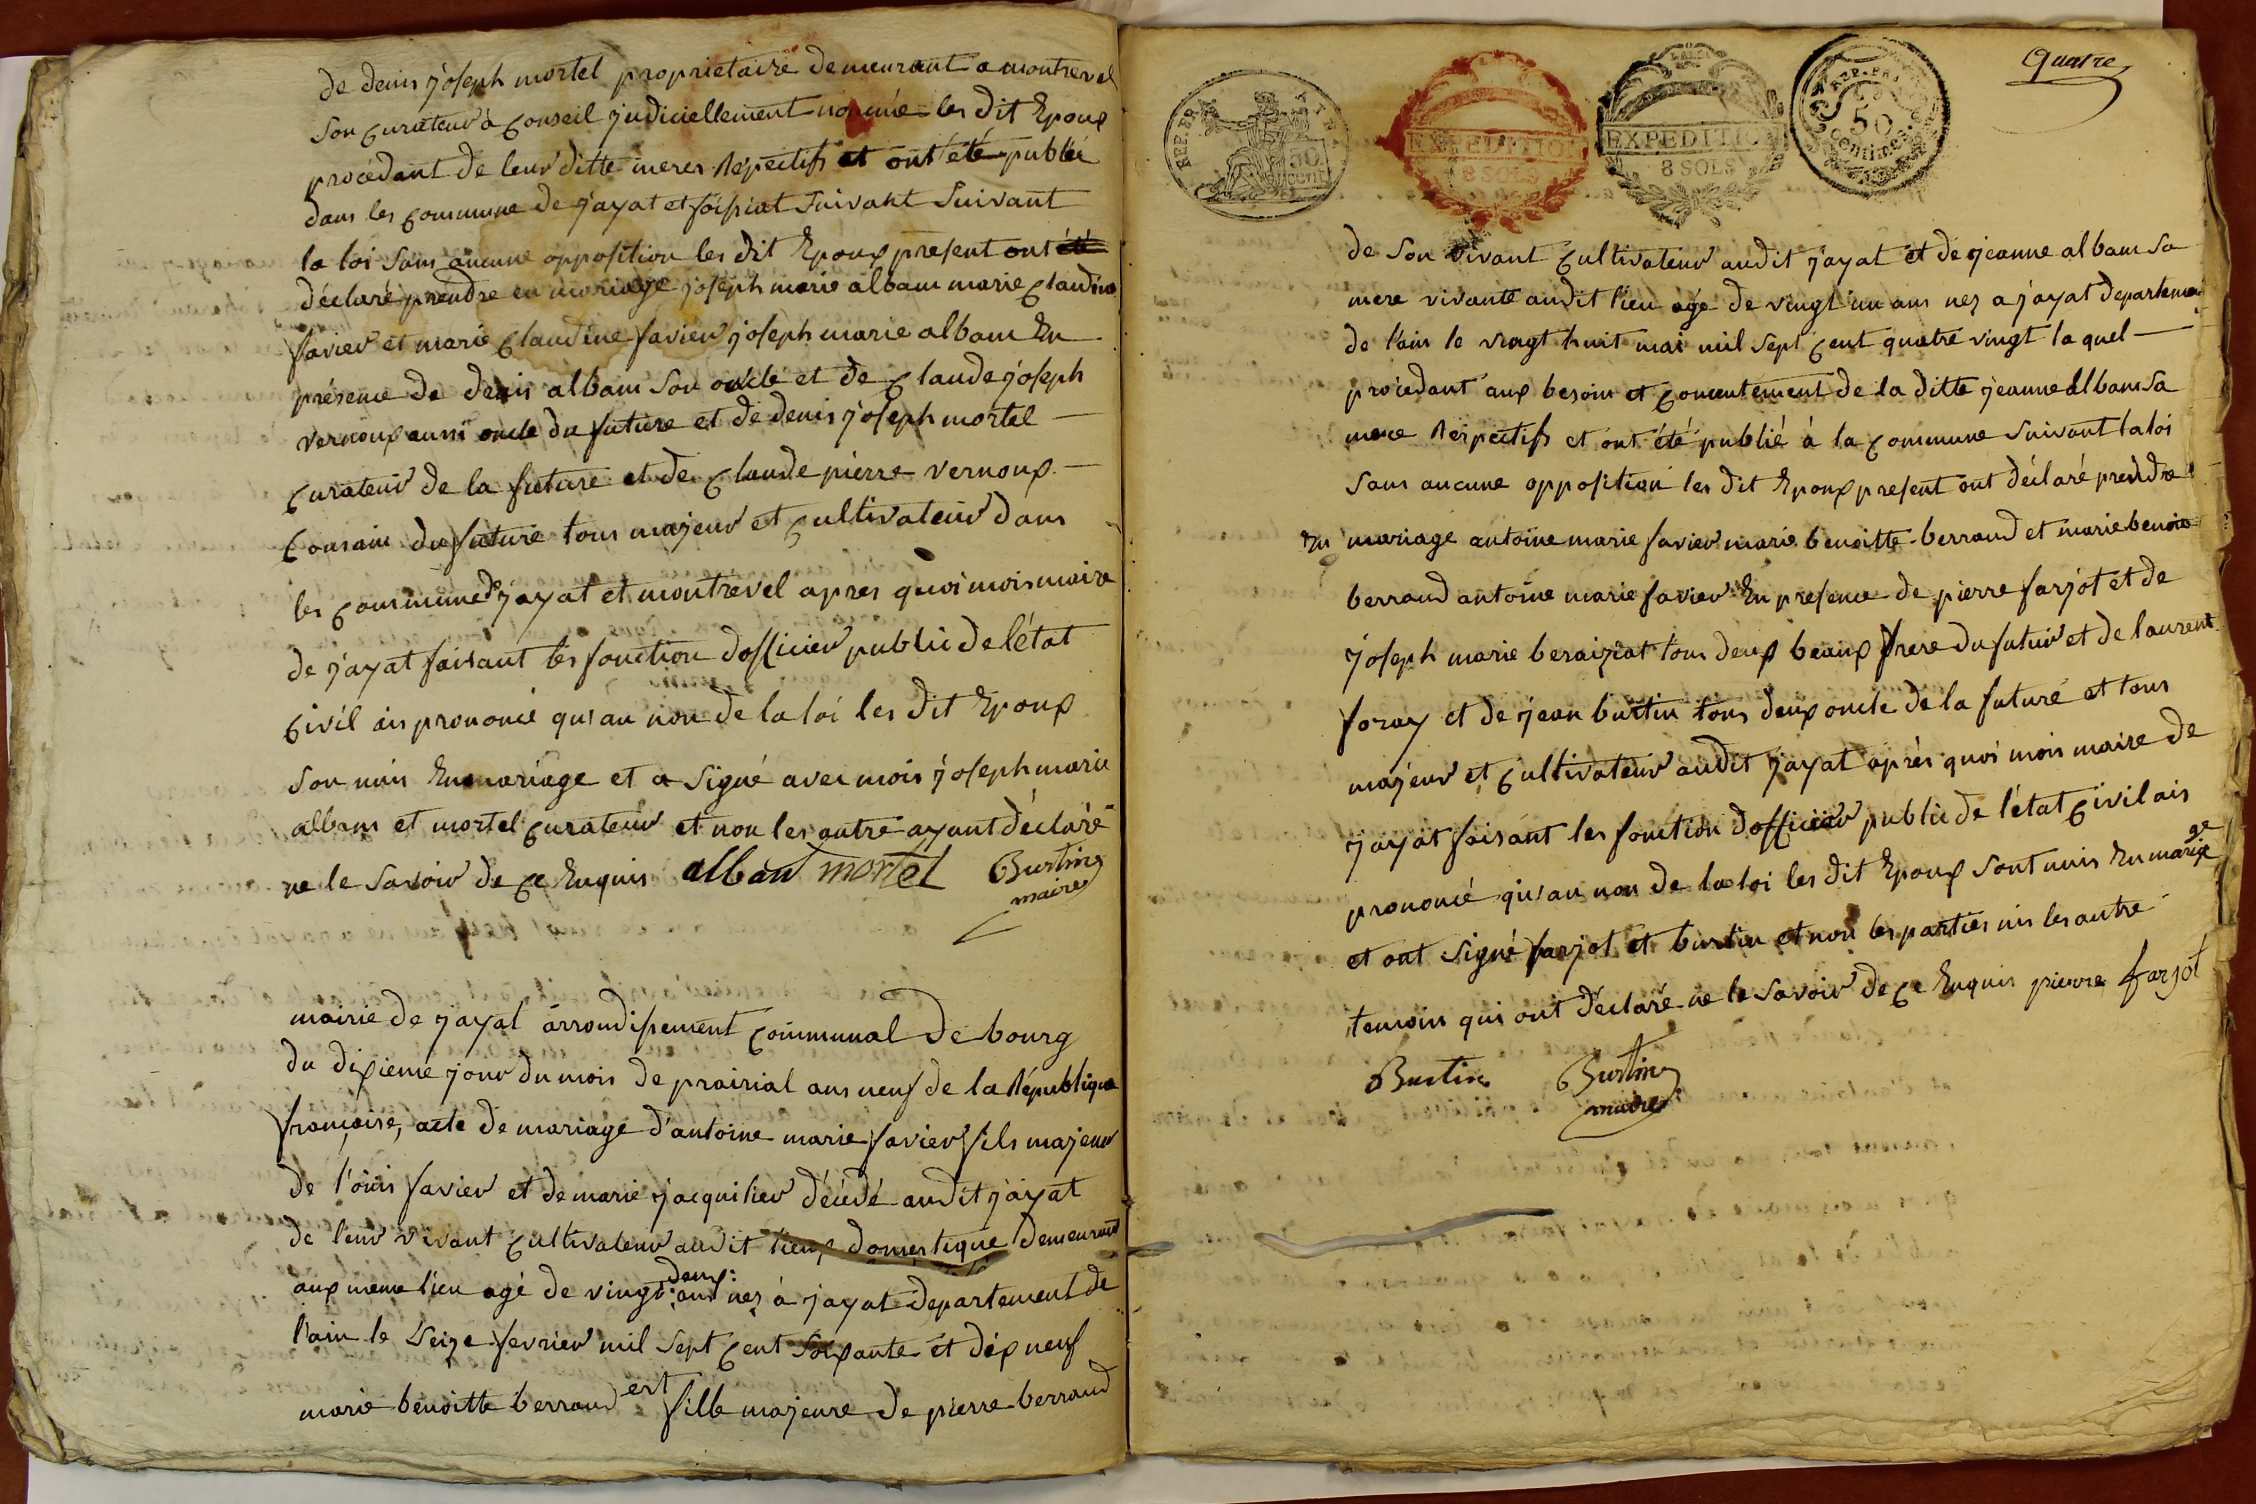 de denis joseph mortel proprietaire demeurant a montrevel
son curateur à conseil judiciellement nommé les dit Epoux
procedant de leur ditte meres Repectifs et ont été publié
dans les commune de jayat et foissiat suivant suivant
la loi sans aucune opposition les dit Epoux present ont été
déclaré prendre en mariage joseph marie albam marie claudine
favier et marie claudine favier joseph marie albam En
présence de denis albam son oncle et de claude joseph
vernoux aussi oncle du future et de denis joseph mortel
curateur de la future et de claude pierre vernoux
cousain du future tous majeur et cultivateur dans
les commune de jayat et montrevel apres quoi mois maire
de jayat faisant les fonction dofficier public de létat
civil ais prononcé qu'au non de la loi les dit Epoux
son unis En mariage et a signé avec mois joseph marie
albam et mortel curateur et non les autre ayant déclaré
ne le savoir de ce Enquis alban mortel Burtin
maire
mairie de jayat arrondissement communal de bourg
du dixieme jour du mois de prairial ans neuf de la République
françaire, acte de mariage d'antoine marie favier fils majeur
de l'ouis favier et de marie jacquilier décédé audit jayat
de leur vivant cultivateur audit lieux domestique demeurant
aux meme lieu agé de vingt deux: ans nez à jayat departement de
l'ain le seize fevrier mil sept cent soixante et dix neuf
marie benoitte berraud est fille majeure de pierre berraud
Quatre
REP. FRA
50
cent.
EXPEDITION
8 SOLS
EXPEDITION
8 SOLS
REP. FRA
50
Centimes
de son vivant cultivateur audit jayat et de jeanne albam sa
mere vivante audit lieu agé de vingt un ans nez a jayat departement
de l'ain le vingt huit mai mil sept cent quatre vingt la quel
procedant aux besoin et concentement de la ditte jeanne albam sa
mere Respectifs et ont été publié à la commune suivant la loi
sans aucune opposition les dit Epoux present ont déclaré prendre
En mariage antoine marie favier marie benoitte berraud et marie benoite
berraud antoine marie favier En presence de pierre farjot et de
joseph marie beraiziat tous deux beaux frere du futur et de laurent
foray et de jean burtin tous deux oncle de la futuré et tous
majeur et cultivateur audit jayat après quoi mois maire de
jayat faisant les fonction dofficier public de létat civil ais
prononcé qu'au non de la loi les dit Epoux sont unis En mariage
et ont signé farjot et burtin et non les parties nis les autre
temoins qui ont déclaré ne le savoir de ce Enquis pierre farjot
Burtin Burtin
maire